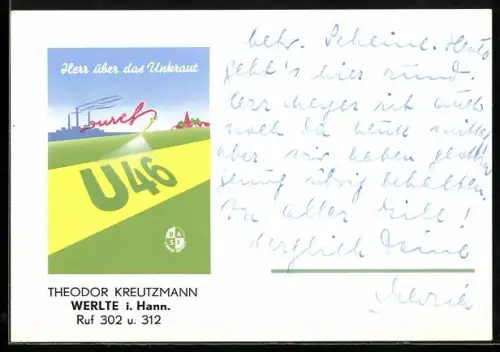 Herr über das Unkraut
durch
U46
BASF
THEODOR KREUTZMANN
WERLTE i. Hann.
Ruf 302 u. 312
betr. Scheine. Heute
geht's hier rund.
Herr Meyer ist auch
noch da heute
aber wir haben
genug übrig behalten.
In aller Eile!
Herzlich Deine